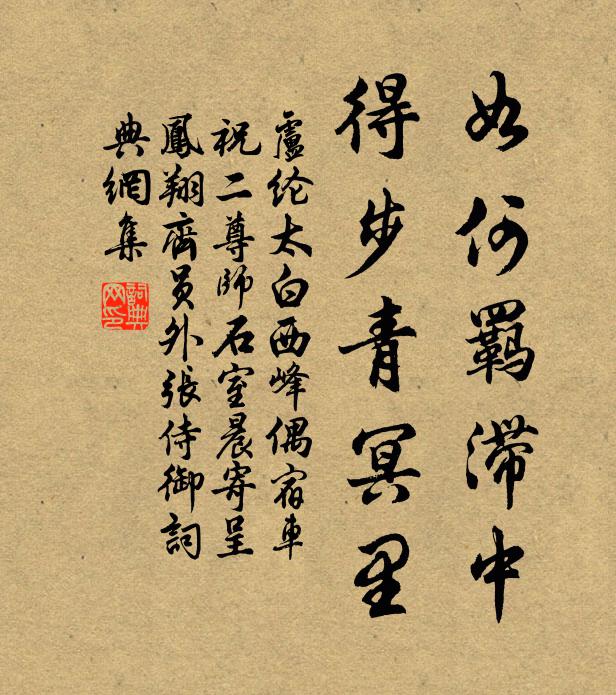 如何羁滞中
得步青冥里
盧纶太白西峰偶宿車
祝二尊師石室晨寄呈
鳳翔齊員外張侍御詞
典網集
詞典
网印